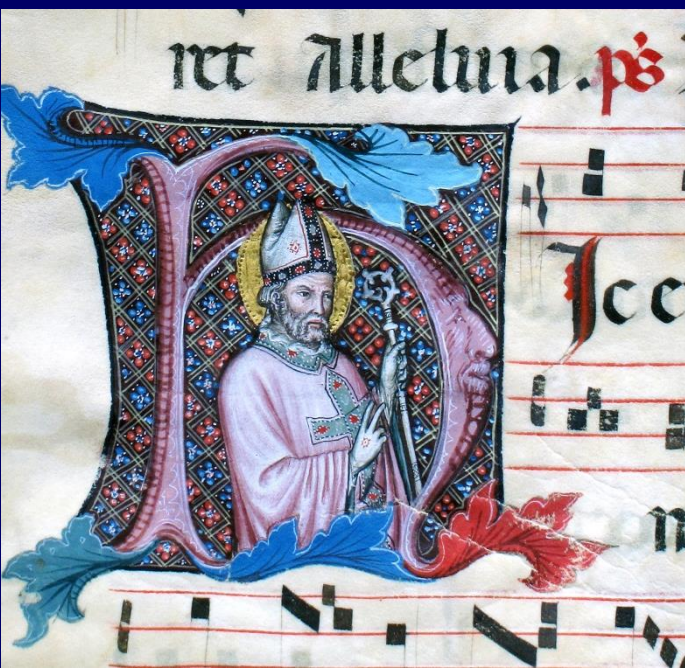 ret Alleluia. p̄s
hIce